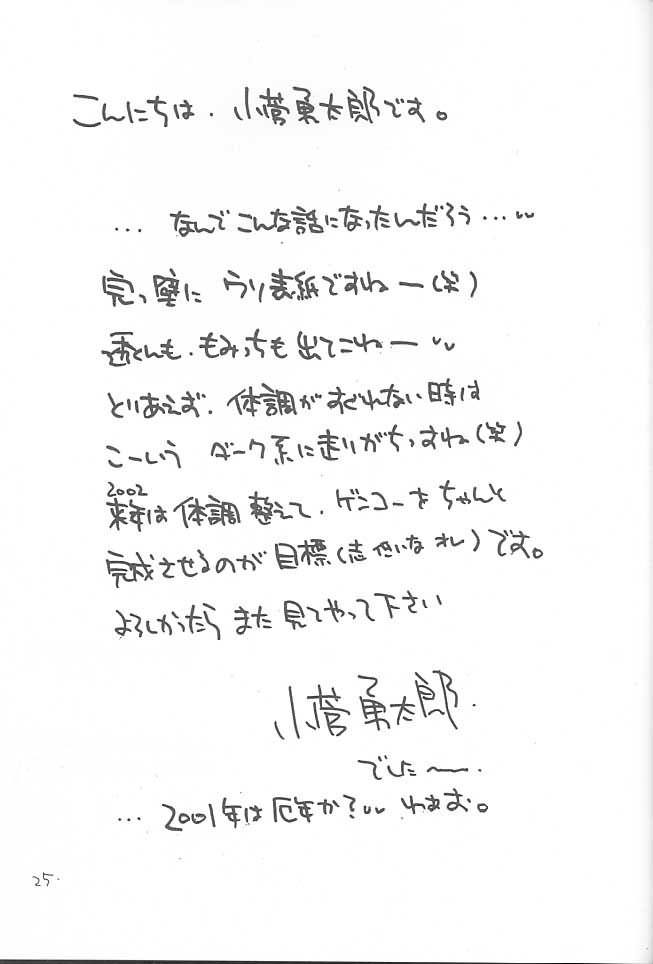 こんにちは．小菅勇太郎です。
… なんでこんな話になったんだろう…
完っ壁に ウソ表紙ですねー(笑)
透くんも、もみっちも出てこねー
とりあえず、体調がすぐれない時は
こーいう ダーク系に走りがちっすね(笑)
2002
来年は体調整えて、ゲンコーをちゃんと
完成させるのが目標(志低いなオレ)です。
よろしかったらまた見てやって下さい
小菅勇太郎．
でした〜．
… 2001年は厄年か？わぁお。
25.